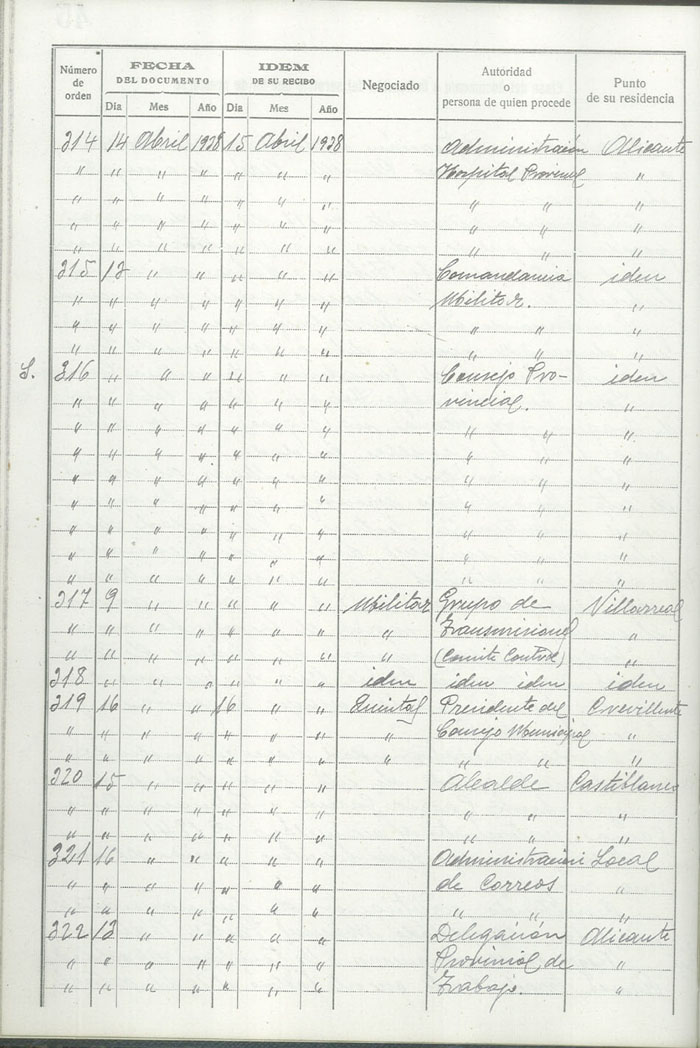 Número de orden | FECHA DEL DOCUMENTO | IDEM DE SU RECIBO | Negociado | Autoridad o persona de quien procede | Punto de su residencia
Dia | Mes | Año | Dia | Mes | Año
314 14 Abril 1938 15 Abril 1938 Administración Alicante
" " " " " " " Hospital Provincial "
" " " " " " " " " "
" " " " " " " " " "
" " " " " " " " " "
315 13 " " " " " Comandancia iden
" " " " " " " Militar. "
" " " " " " " " " "
" " " " " " " " " "
S. 316 " " " " " " Consejo Pro- iden
" " " " " " " vincial. "
" " " " " " " " " "
" " " " " " " " " "
" " " " " " " " " "
" " " " " " " " " "
" " " " " " " " " "
" " " " " " " " " "
" " " " " " " " " "
317 9 " " " " " Militar Grupo de Villarreal
" " " " " " " " Transmisiones "
" " " " " " " " (Comite Control) "
318 " " " " " " iden iden iden iden
319 16 " " 16 " " Quintas Presidente del Crevillente
" " " " " " " " Consejo Municipal "
" " " " " " " " " " "
320 15 " " " " " Alcalde Castiblanco
" " " " " " " " " "
" " " " " " " " " "
321 16 " " " " " Administracion Local
" " " " " " " de Correos "
" " " " " " " " " "
322 13 " " " " " Delegación Alicante
" " " " " " " Provincial de "
" " " " " " " Trabajo. "